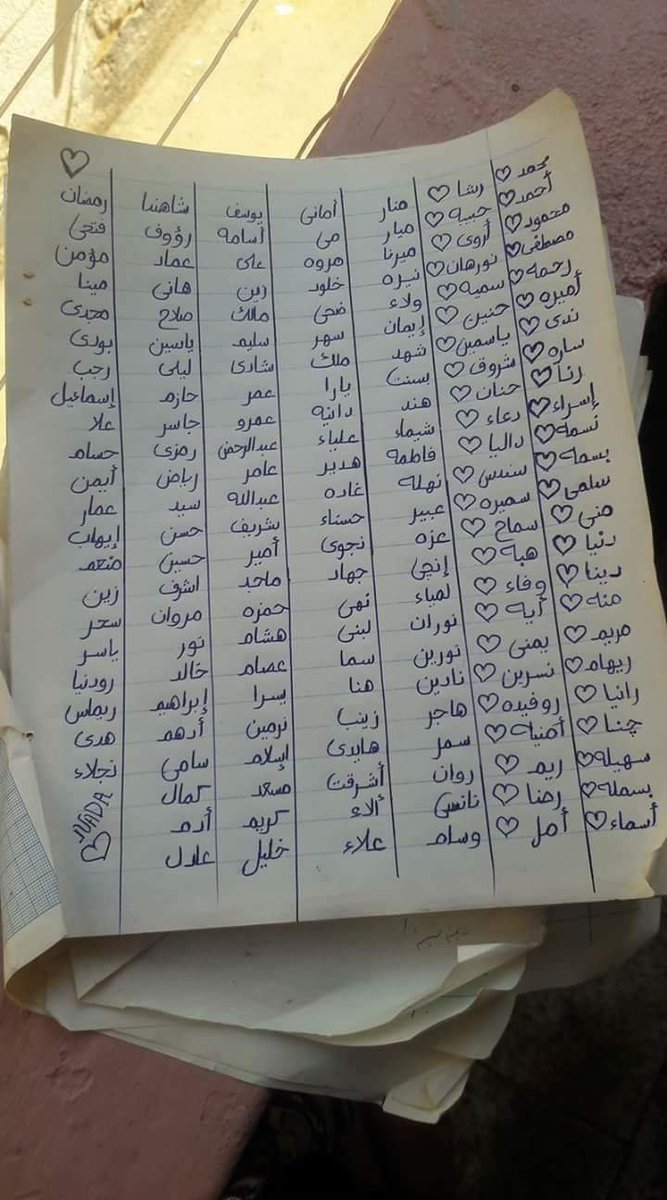 محمد
أحمد
محمود
مصطفى
رحمه
أميره
ندى
ساره
رنا
إسراء
نسمه
بسمه
سلمى
منى
دنيا
دينا
منه
مريم
ريهام
رانيا
جنا
سهيله
بسمله
أسماء
رشا
حبيبه
أروى
نورهان
سميه
حنين
ياسمين
شروق
حنان
دعاء
داليا
سندس
سميره
سماح
هبه
وفاء
أيه
يمنى
نسرين
روفيده
أمنيه
ريم
رضا
أمل
منار
ميار
ميرنا
نيره
ولاء
إيمان
شهد
بسنت
هند
شيماء
فاطمه
نهله
عبير
عزه
إنجى
لمياء
نوران
نورين
نادين
هاجر
سمر
روان
نانسى
وسام
أمانى
مى
مروه
خلود
ضحى
سهر
ملك
يارا
دانيه
علياء
هدير
غاده
حسناء
نجوى
جهاد
نهى
لبنى
سما
هنا
زينب
هايدى
أشرقت
ألاء
علاء
يوسف
أسامه
على
زين
مالك
سليم
شادى
عمر
عمرو
عبدالرحمن
عامر
عبدالله
شريف
أمير
ماجد
حمزه
هشام
عصام
يسرا
نرمين
إسلام
مسعد
كريم
خليل
شاهندا
رؤوف
عماد
هانى
صلاح
ياسين
ليلى
حازم
جاسر
رمزى
رياض
سيد
حسن
حسين
اشرف
مروان
نور
خالد
إبراهيم
أدهم
سامى
كمال
أدم
عادل
رمضان
فتحى
مؤمن
مينا
مجدى
بودى
رجب
إسماعيل
علا
حسام
أيمن
عمار
إيهاب
منعم
زين
سحر
ياسر
رودنيا
ريماس
هدى
نجلاء
NADA